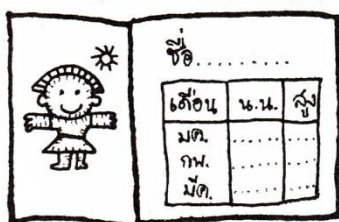 ชื่อ..........
เดือน น.น. สูง
มค. ...... ......
กพ. ...... ......
มีค. ...... ......